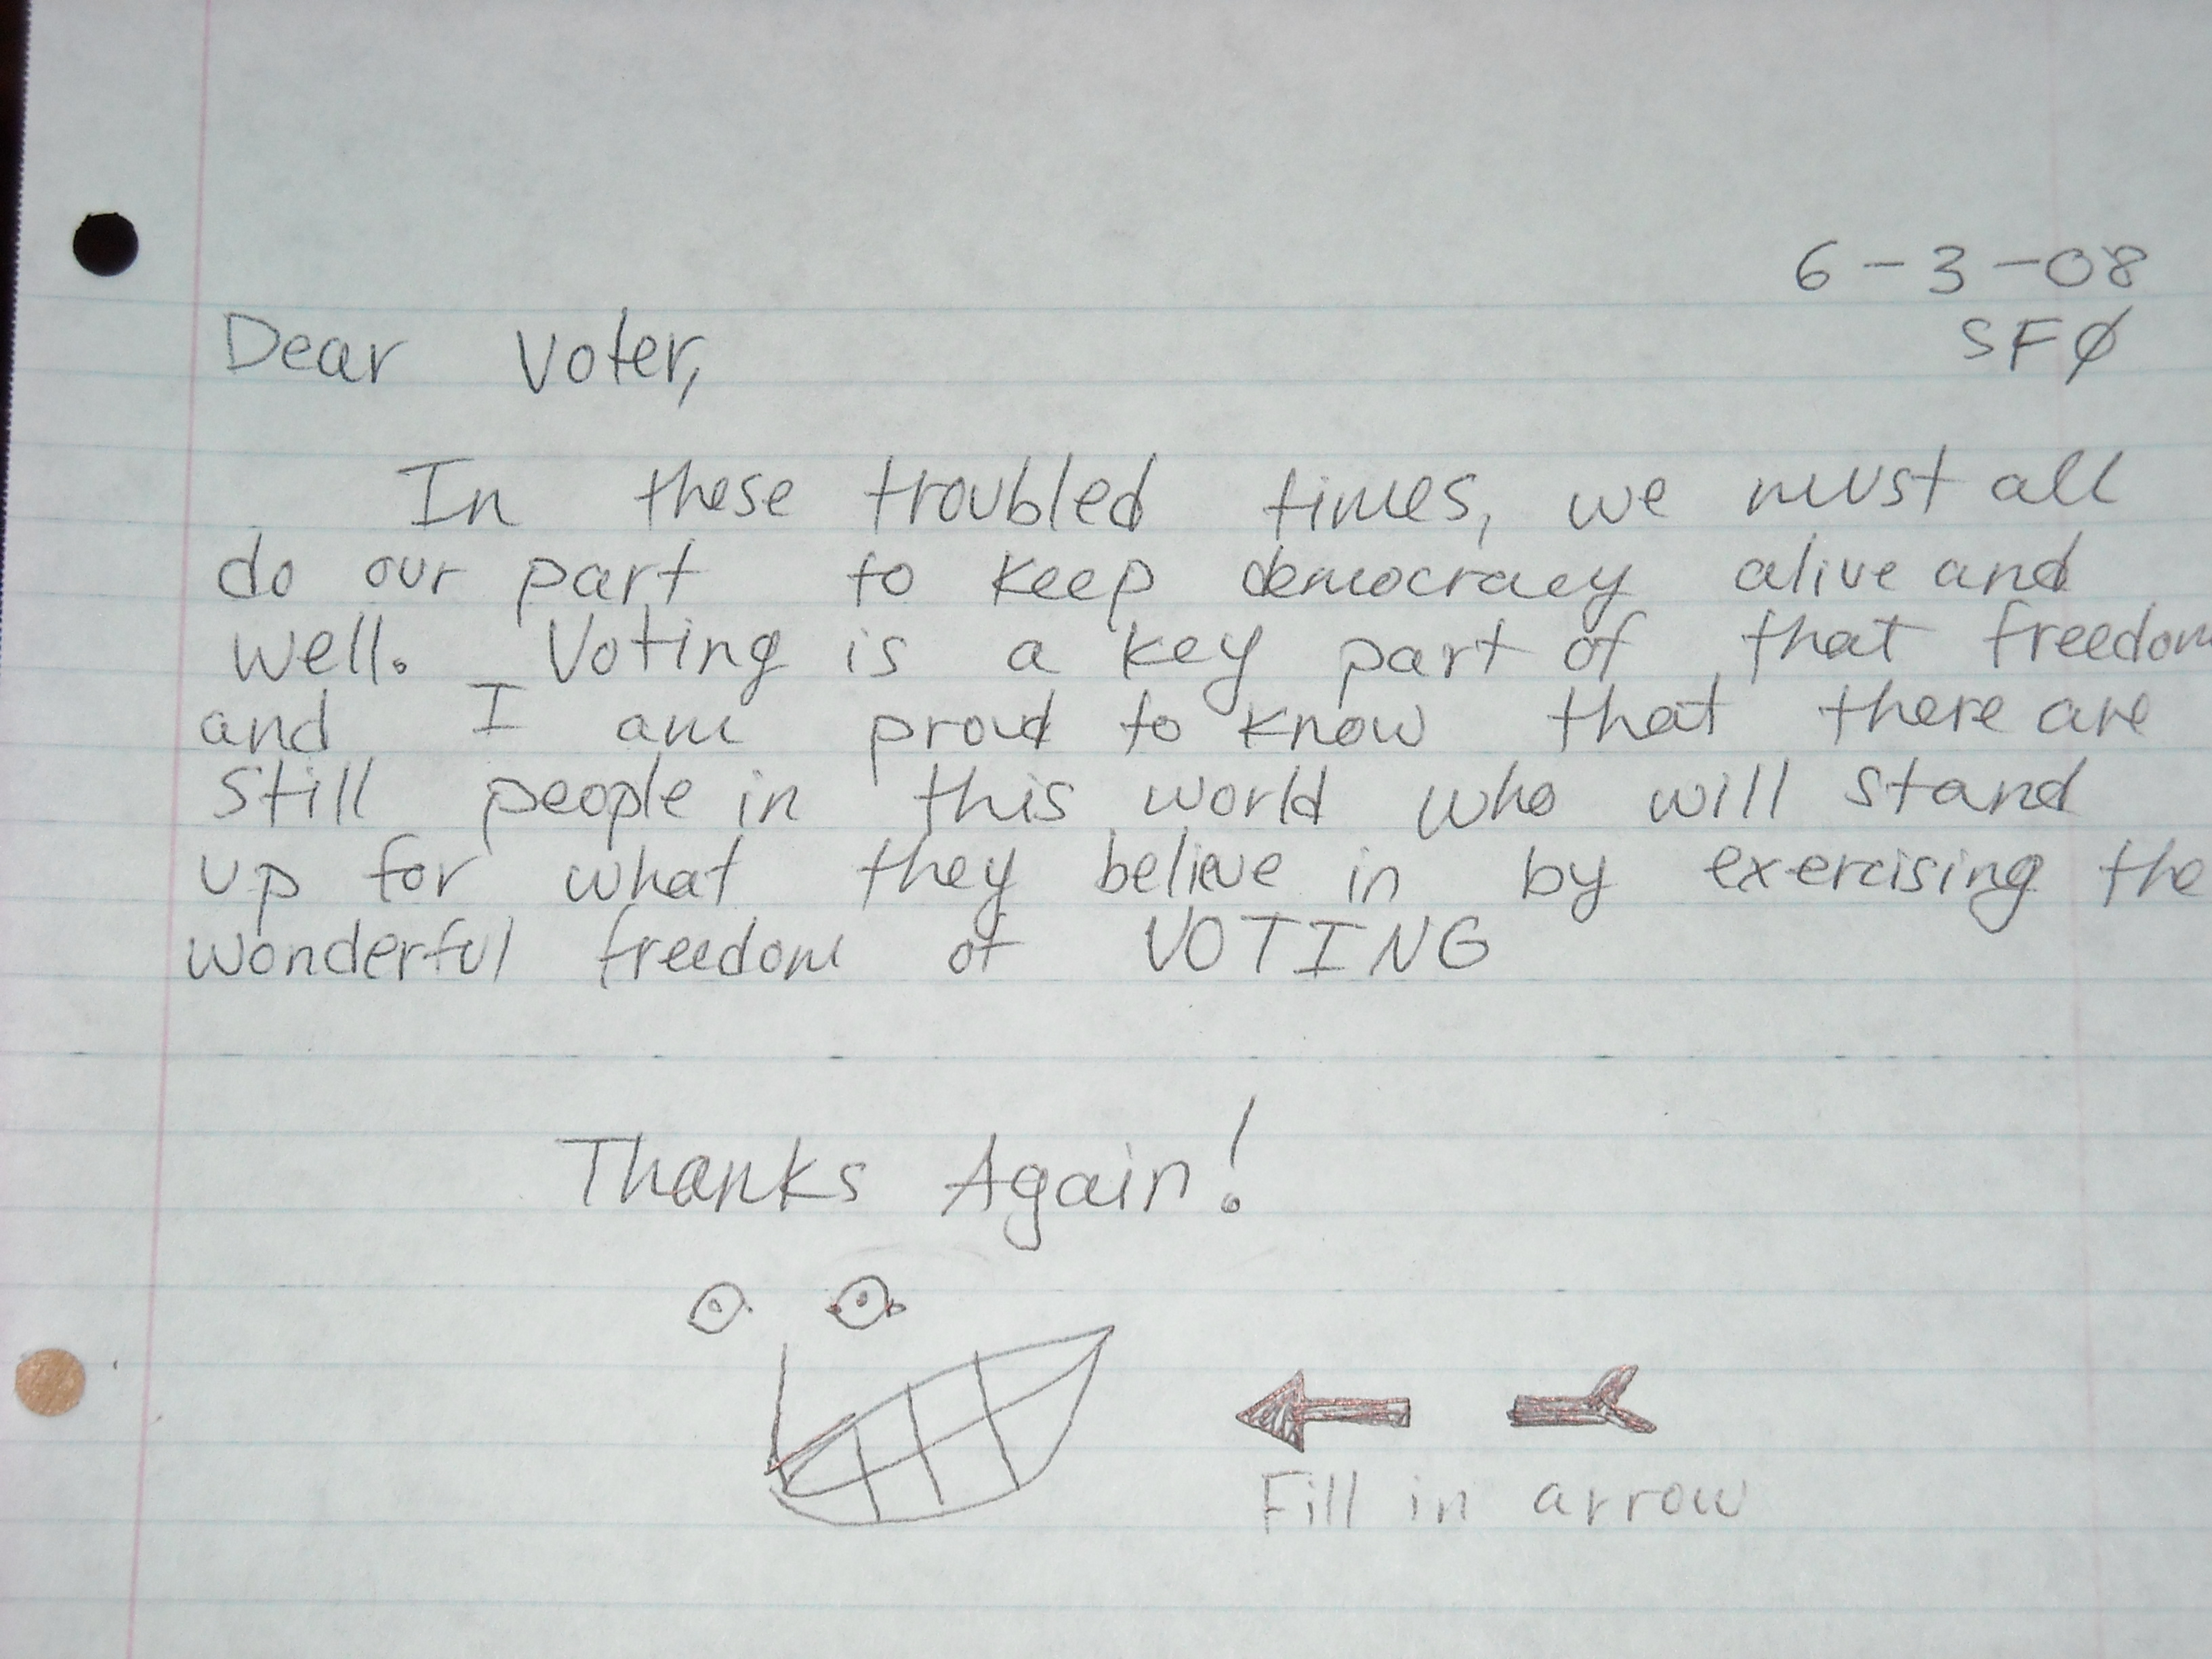 6-3-08
SFØ
Dear Voter,
In these troubled times, we must all
do our part to keep democracy alive and
well. Voting is a key part of that freedom
and I am proud to know that there are
still people in this world who will stand
up for what they believe in by exercising the
wonderful freedom of VOTING
Thanks Again!
Fill in arrow